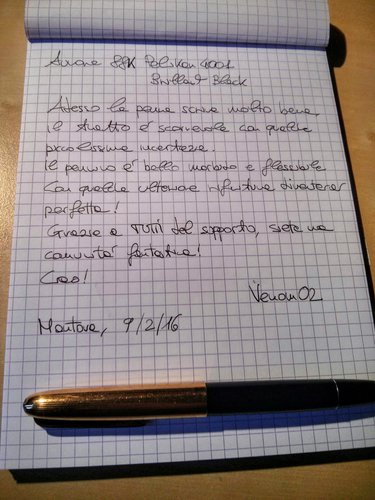 Aurora 88K Pelikan 4001
Brillant Black
Adesso la penna scrive molto bene,
il tratto è scorrevole con qualche
piccolissima incertezza.
Il pennino è bello morbido e flessibile
Con qualche ulteriore rifinitura diventerà
perfetta!
Grazie a TUTTI del supporto, siete una
comunità fantastica!
Ciao!
Venom02
Mantova, 9/2/16